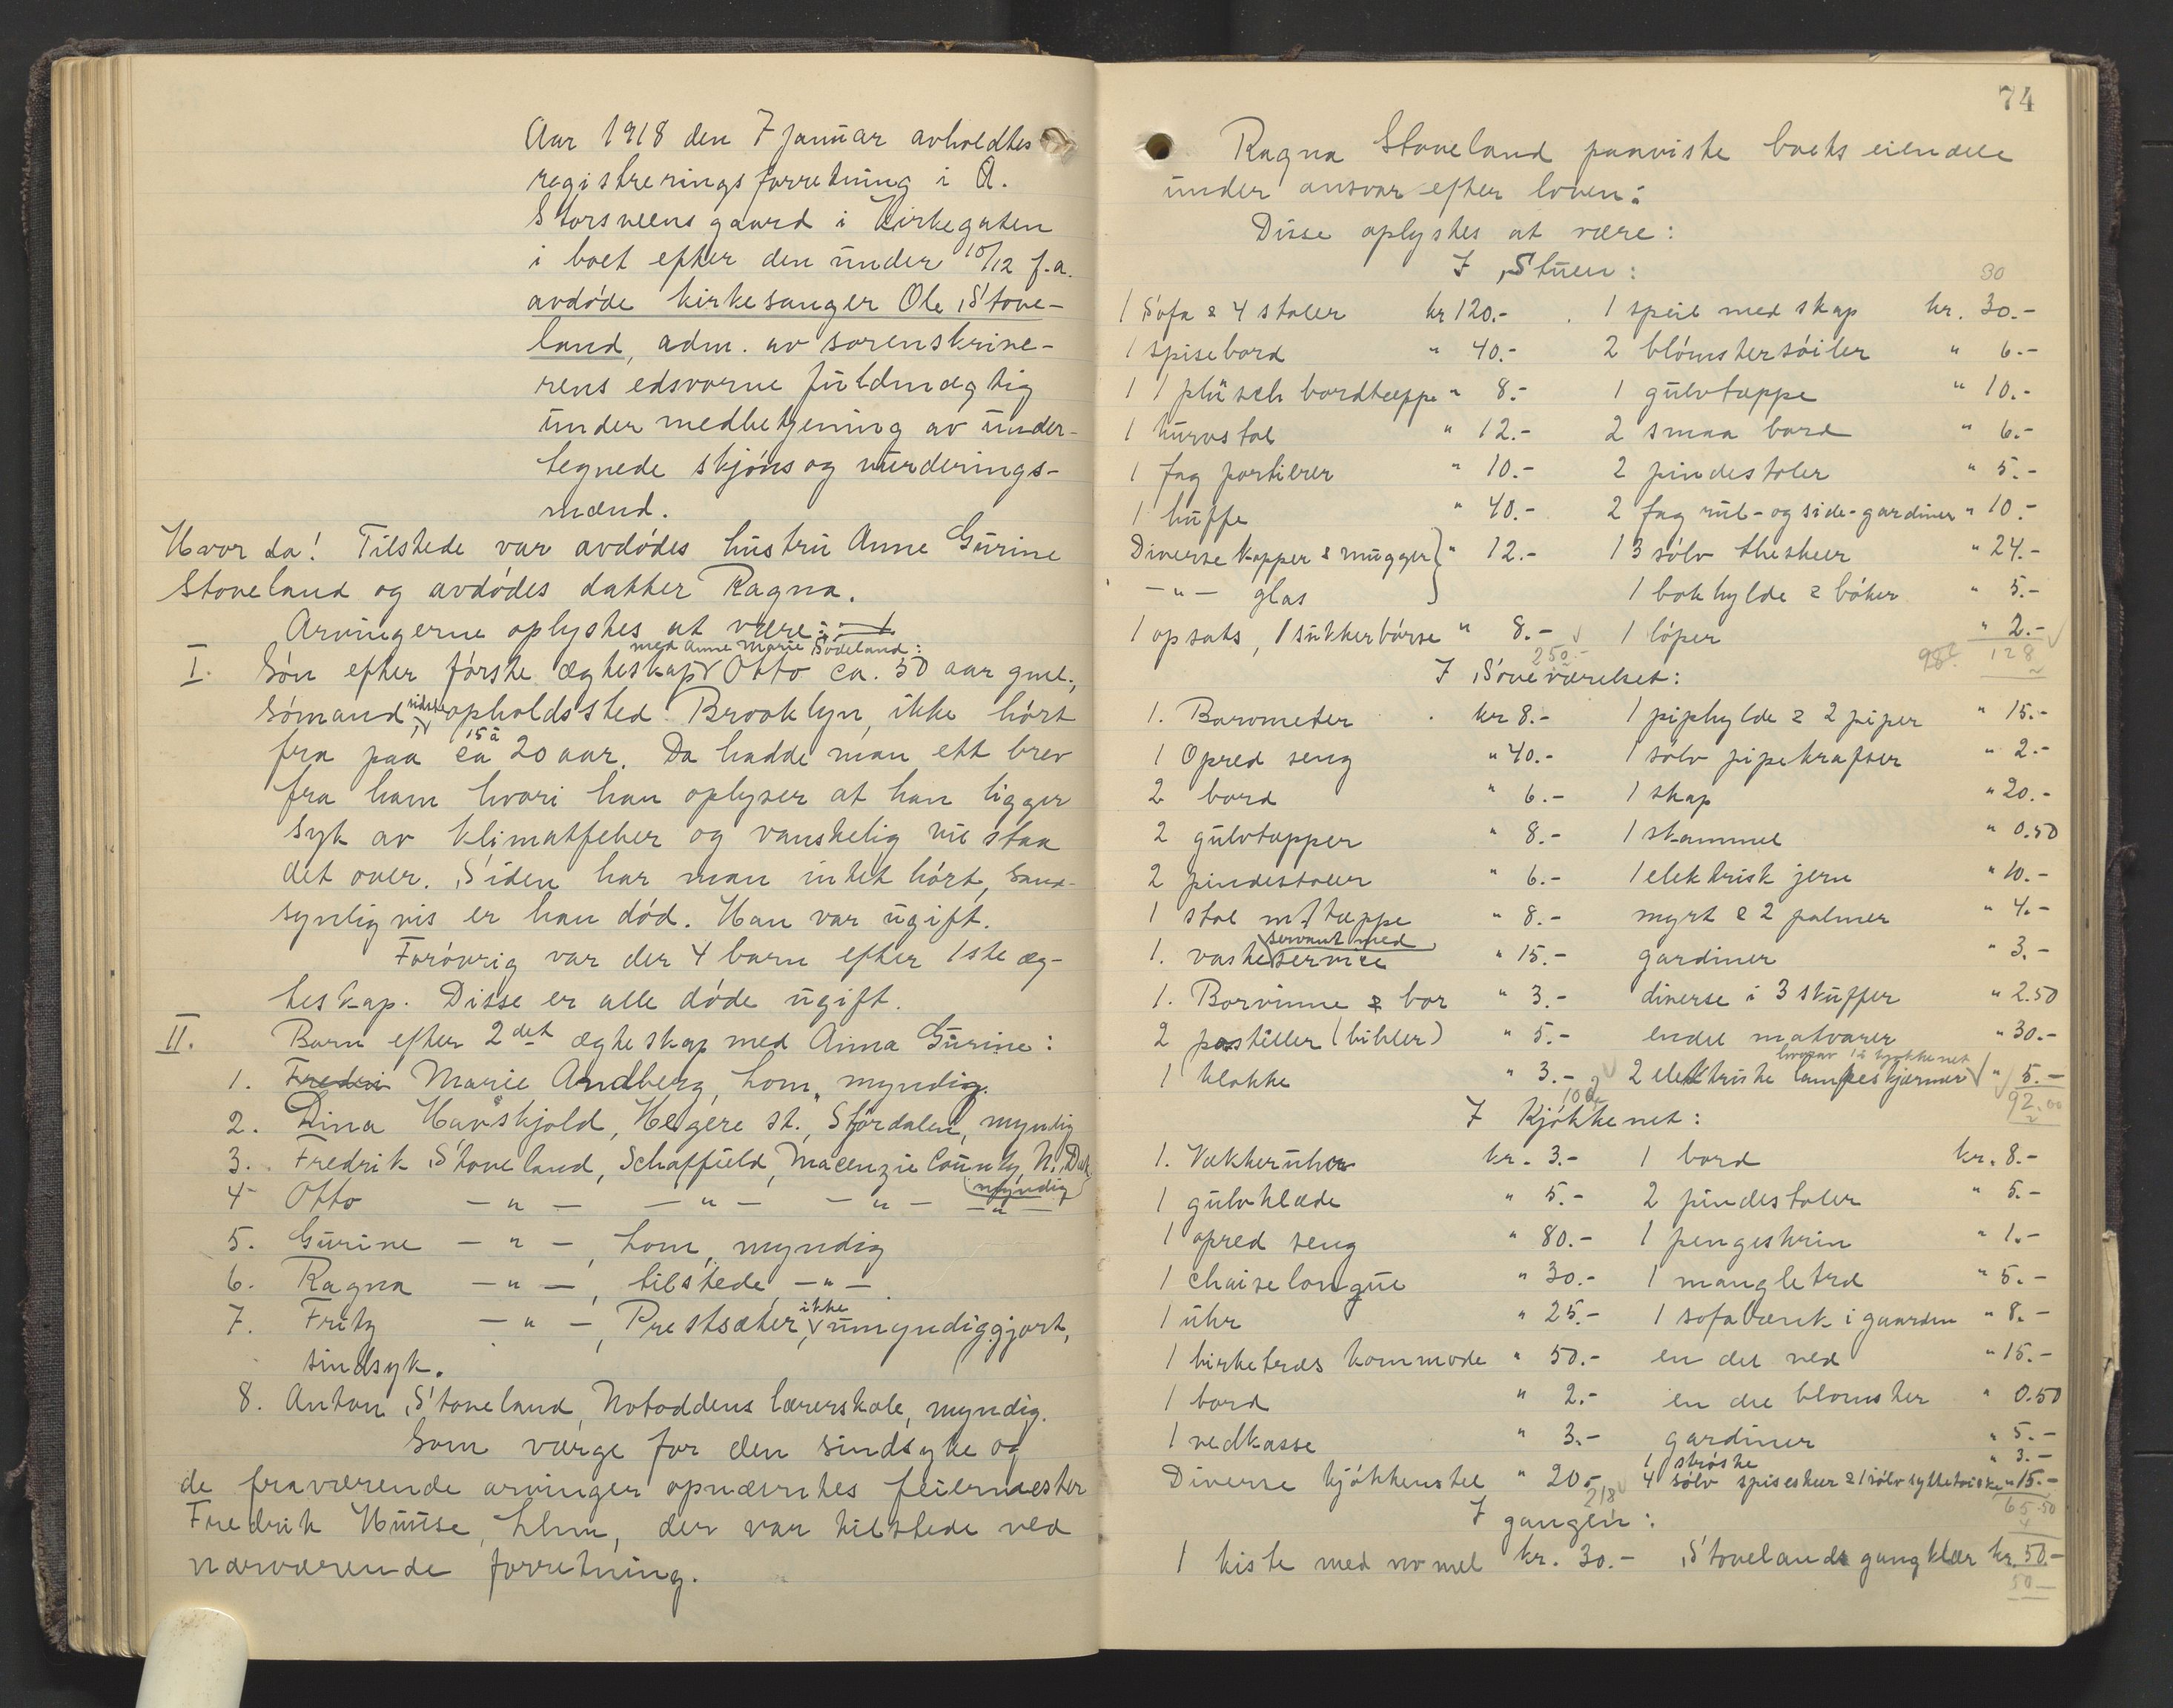 Aar 1918 den 7 januar avholdtes
registreringsforretning i A.
Storsveens gaard i Kirkegaten
i boet efter den under 10/12 f.a.
avdøde kirkesanger Ole Stove-
land, adm. av sorenskrive-
rens edsvorne fuldmægtig
under medbetjening av under-
tegnede skjøns og vurderings-
mænd.
Hvor da! Tilstede var avdødes hustru Anne Gurine
Stoveland og avdødes datter Ragna.
Arvingerne oplystes at være:
med Anne Marie Sødeland:
I. Søn efter første ægteskap Otto ca. 50 aar gml.,
sømand, sidste opholdssted Brooklyn, ikke hørt
fra paa ca 15 à 20 aar. Da hadde man ett brev
fra ham hvori han oplyser at han ligger
syk av klimatfeber og vanskelig vil staa
det over. Siden har man intet hørt, sand-
synligvis er han død. Han var ugift.
Forøvrig var der 4 barn efter 1ste æg-
teskap. Disse er alle døde ugift.
II. Barn efter 2det ægteskap med Anna Gurine:
1. Marie Andberg, Lom, myndig.
2. Dina Havskjold, Hegere st., Stjørdalen, myndig
3. Fredrik Stoveland, Schaffield, Macenzie County N. Dak.
(myndig)
4 Otto -"- -"- -"- -"-
5. Gurine -"-, Lom, myndig
6. Ragna -"-, tilstede -"-.
7. Fritz -"-, Prestsæter, ikke umyndiggjort,
sindsyk.
8. Anton Stoveland, Notoddens lærerskole, myndig.
Som værge for den sindsyke og
de fraværende arvinger opnævntes feiermester
Fredrik Huuse, Lhm, der var tilstede ved
nærværende forretning.
74
Ragna Stoveland paaviste boets eiendele
under ansvar efter loven:
Disse oplystes at være:
I Stuen:
30
1 Sofa & 4 stoler kr 120.- 1 speil med skap kr. 30.-
1 spisebord " 40.- 2 blomstersøiler " 6.-
1 1 plüsch bordteppe " 8.- 1 gulvtæppe " 10.-
1 kurvstol " 12.- 2 smaa bord " 6.-
1 fag portierer " 10.- 2 pindestoler " 5.-
1 buffe " 40.- 2 fag rul- og side-gardiner " 10.-
Diverse kopper & mugger } " 12.- 13 sølv theskeer " 24.-
-"- glas } 1 bokhylde & bøker " 5.-
1 opsats, 1 sukkerbørse " 8.- 1 løper " 2.-
250.- 98 128
I Soveværelset:
1. Barometer kr 8.- 1 piphylde & 2 piper " 15.-
1 Opred seng " 40.- 1 sølv pipekrafser " 2.-
2 bord " 6.- 1 skap " 20.-
2 gulvtæpper " 8.- 1 skammel " 0.50
2 pindestoler " 6.- 1 elektrisk jern " 10.-
1 stol m/tæppe " 8.- myrt & 2 palmer " 4.-
1. vaskeservant med service " 15.- gardiner " 3.-
1. Borvinne & bor " 3.- diverse i 3 skuffer " 2.50
2 postiller (bibler) " 5.- endel matvarer " 30.-
hvorav 1 i kjøkkenet
1 klokke " 3.- 2 elektriske lampeskjærmer " 5.-
102 92.00
I Kjøkkenet:
1. Vækkeruhr kr. 3.- 1 bord kr. 8.-
1 gulvklæde " 5.- 2 pindestoler " 5.-
1 opred seng " 80.- 1 pengeskrin " 1.-
1 chaiselongue " 30.- 1 mangletræ " 5.-
1 uhr " 25.- 1 sofabænk i gaarden " 8.-
1 birketræs kommode " 50.- en del ved " 15.-
1 bord " 2.- en del blomster " 0.50
1 vedkasse " 3.- gardiner " 5.-
1 strøske " 3.-
Diverse kjøkkenstel " 20.- 4 sølv spiseskeer & 1 sølv sylteteiske " 15.-
218 65.50
I gangen:
1 kiste med no mel kr. 30.- Stovelands gangklær kr. 50.-
50-